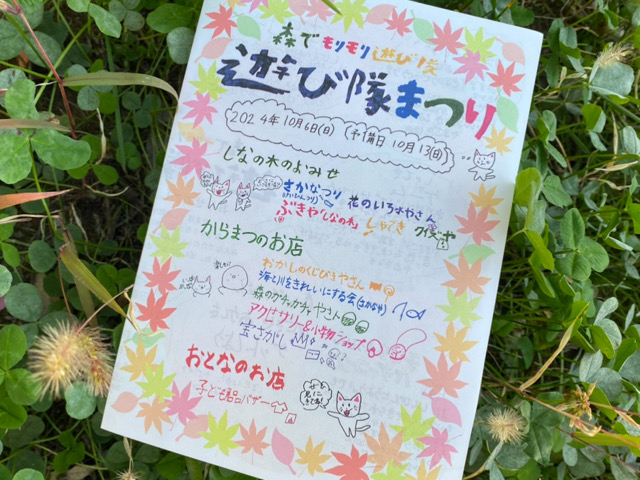 森でモリモリ遊び隊
遊び隊まつり
2024年10月6日(日) (予備日 10月13(日)
しなの木のよみせ
さかなつり 花のいろ水やさん
ぶきや「しなの木」 しゃてき
からまつのお店
おかしのくじびきやさん
海と川をきれいにする会(さかなや)
森のガチャガチャやさん
アクセサリー&小物ショップ
宝さがし
おとなのお店
子ども用品バザー
ぜひ
見に
きてね!